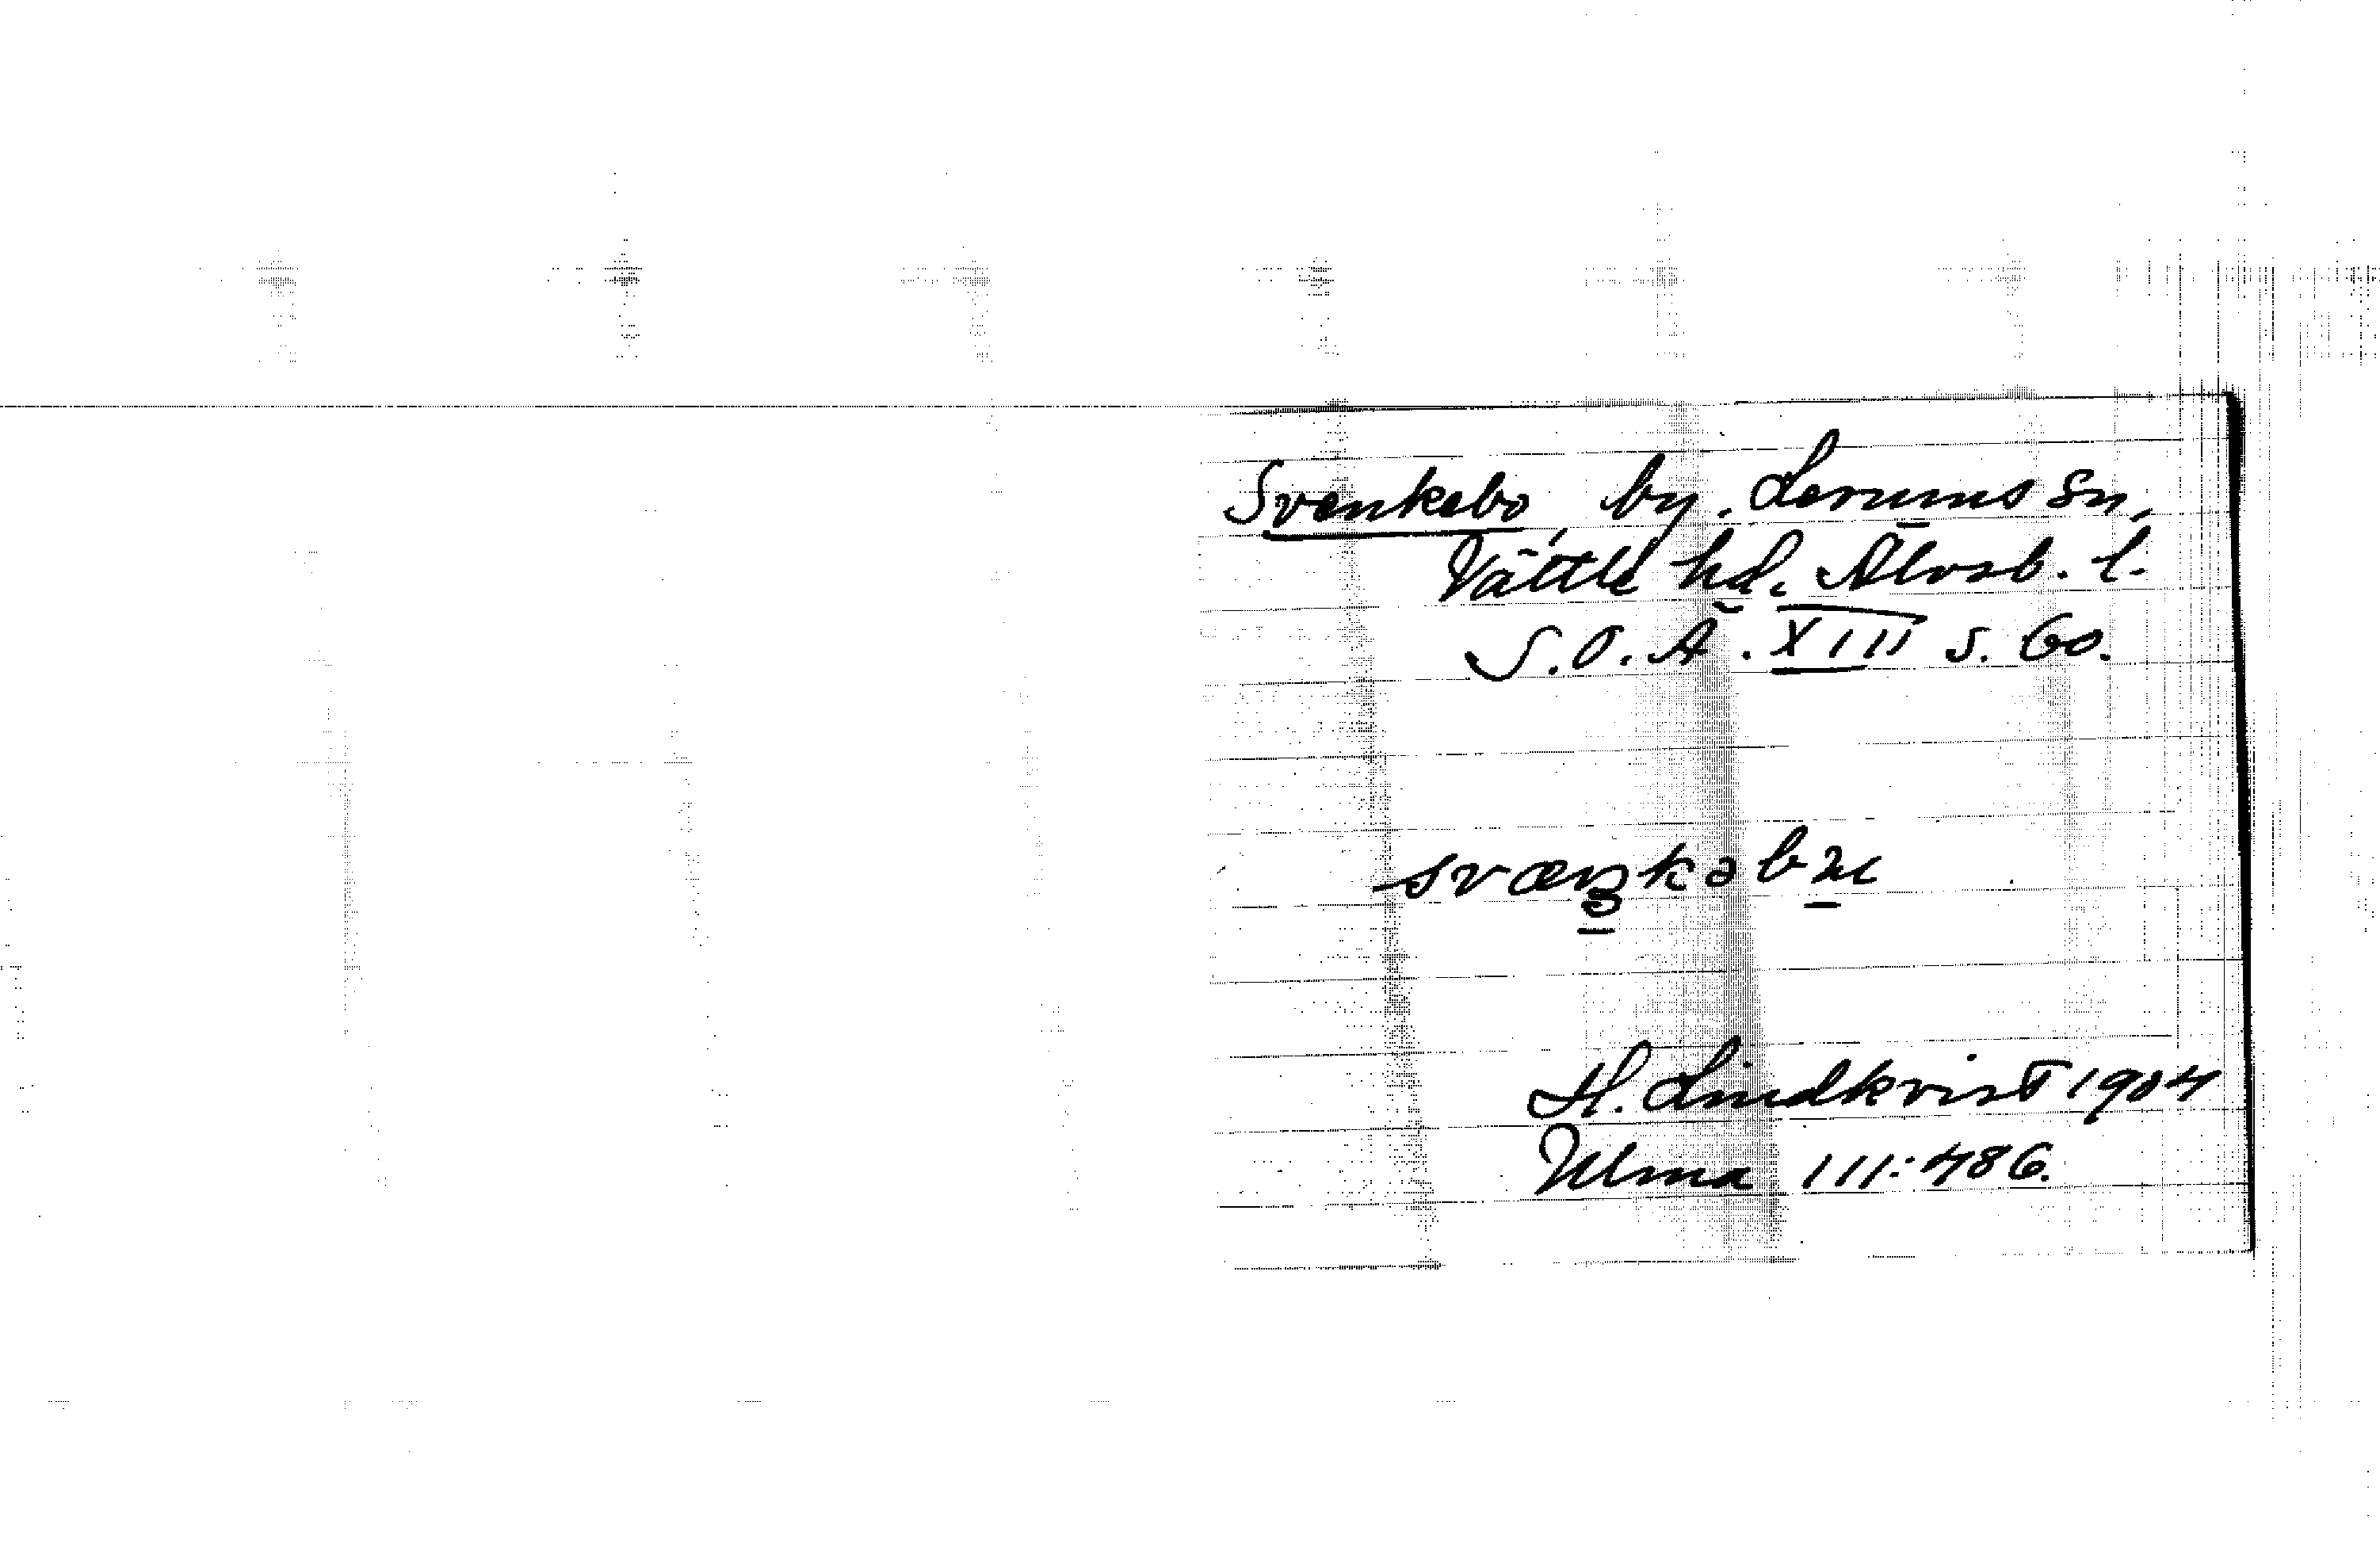 Svenkebo, by. Lerums sn,
Vättle hd. Älvsb. l.
S.O.Ä. XIII s. 60.
H. Lindkvist 1904
Ulma 111:486.